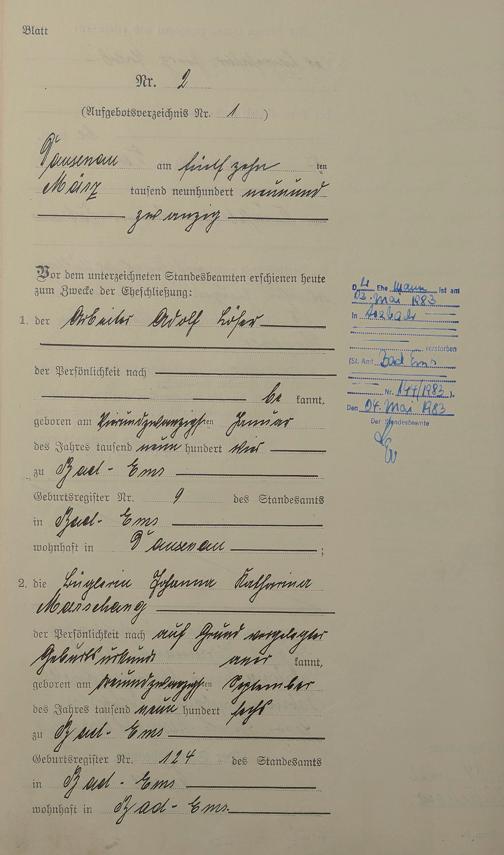 Blatt
Nr. 2
(Aufgebotsverzeichnis Nr. 1)
Dausenau am fünfzehn ten
März tausend neunhundert neunund
zwanzig
Vor dem unterzeichneten Standesbeamten erschienen heute
zum Zwecke der Eheschließung:
1. der Arbeiter Adolf Löser
der Persönlichkeit nach
be kannt,
geboren am vierundzwanzigsten Januar
des Jahres tausend neun hundert vier
zu Bad-Ems
Geburtsregister Nr. 9 des Standesamts
in Bad-Ems
wohnhaft in Dausenau;
2. die Büglerin Johanna Katharina
Marschang
der Persönlichkeit nach auf Grund vorgelegter
Geburtsurkunde aner kannt,
geboren am dreiundzwanzigsten September
des Jahres tausend neun hundert sechs
zu Bad-Ems
Geburtsregister Nr. 124 des Standesamts
in Bad-Ems
wohnhaft in Bad-Ems
Der Ehemann ist am
03. Mai 1983
in
verstorben
(St. Amt Bad Ems
Nr. 144/1983).
Den 04. Mai 1983
Der Standesbeamte